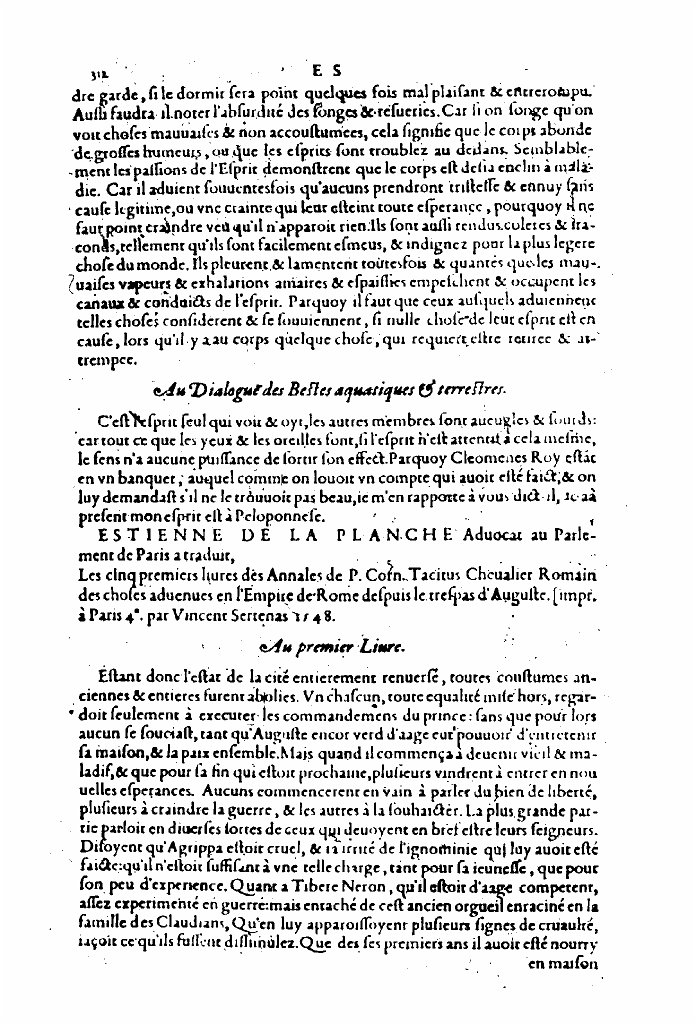 312 E S
dre garde, si le dormir sera point quelques fois mal plaisant & entrerõpu.
Aussi faudra il noter l'absurdité des songes & resueries. Car si on songe qu'on
voit choses mauuaises & non accoustumees, cela signifie que le corps abonde
de grosses humeurs, ou que les esprits sont troublez au dedans. Semblable-
ment les passions de l'Esprit demonstrent que le corps est desia enclin à mala-
die. Car il aduient souuentesfois qu'aucuns prendront tristesse & ennuy sans
cause legitime, ou vne crainte qui leur esteint toute esperance, pourquoy il ne
faut point craindre veu qu'il n'apparoit rien. Ils sont aussi rendus coleres & ira-
conds, tellement qu'ils sont facilement esmeus, & indignez pour la plus legere
chose du monde. Ils pleurent & lamentent toutesfois & quantes que les mau-
uaises vapeurs & exhalations amaires & espaissies empeschent & occupent les
canaux & conduicts de l'esprit. Parquoy il faut que ceux ausquels aduiennent
telles choses considerent & se souuiennent, si nulle chose de leur esprit est en
cause, lors qu'il y a au corps quelque chose, qui requiert estre retiree & at-
trempee.
Au Dialogue des Bestes aquatiques & terrestres.
C'est l'esprit seul qui voit & oyt, les autres membres sont aueugles & sourds:
car tout ce que les yeux & les oreilles font, si l'esprit n'est attentif à cela mesme,
le sens n'a aucune puissance de sortir son effect. Parquoy Cleomenes Roy estãt
en vn banquet, auquel comme on louoit vn compte qui auoit esté faict, & on
luy demandast s'il ne le trouuoit pas beau, ie m'en rapporte à vous dict il, car à
present mon esprit est à Peloponnese.
ESTIENNE DE LA PLANCHE Aduocat au Parle-
ment de Paris a traduit,
Les cinq premiers liures des Annales de P. Corn. Tacitus Cheualier Romain
des choses aduenues en l'Empire de Rome despuis le trespas d'Auguste. [impr.
à Paris 4°. par Vincent Sertenas 1548.
Au premier Liure.
Estant donc l'estat de la cité entierement renuersé, toutes coustumes an-
ciennes & entieres furent abolies. Vn chascun, toute equalité mise hors, regar-
doit seulement à executer les commandemens du prince: sans que pour lors
aucun se souciast, tant qu'Auguste encor verd d'aage eut pouuoir d'entretenir
sa maison, & la paix ensemble. Mais quand il commença à deuenir vieil & ma-
ladif, & que pour sa fin qui estoit prochaine, plusieurs vindrent à entrer en nou
uelles esperances. Aucuns commencerent en vain à parler du bien de liberté,
plusieurs à craindre la guerre, & les autres à la souhaicter. La plus grande par-
tie parloit en diuerses sortes de ceux qui deuoyent en bref estre leurs seigneurs.
Disoyent qu'Agrippa estoit cruel, & irrité de l'ignominie qui luy auoit esté
faicte: qu'il n'estoit suffisant à vne telle charge, tant pour sa ieunesse, que pour
son peu d'experience. Quant a Tibere Neron, qu'il estoit d'aage competent,
assez experimenté en guerre: mais entaché de cest ancien orgueil enraciné en la
famille des Claudians, Qu'en luy apparoissoyent plusieurs signes de cruauté,
iaçoit ce qu'ils fussent dissimulez. Que des ses premiers ans il auoit esté nourry
en maison